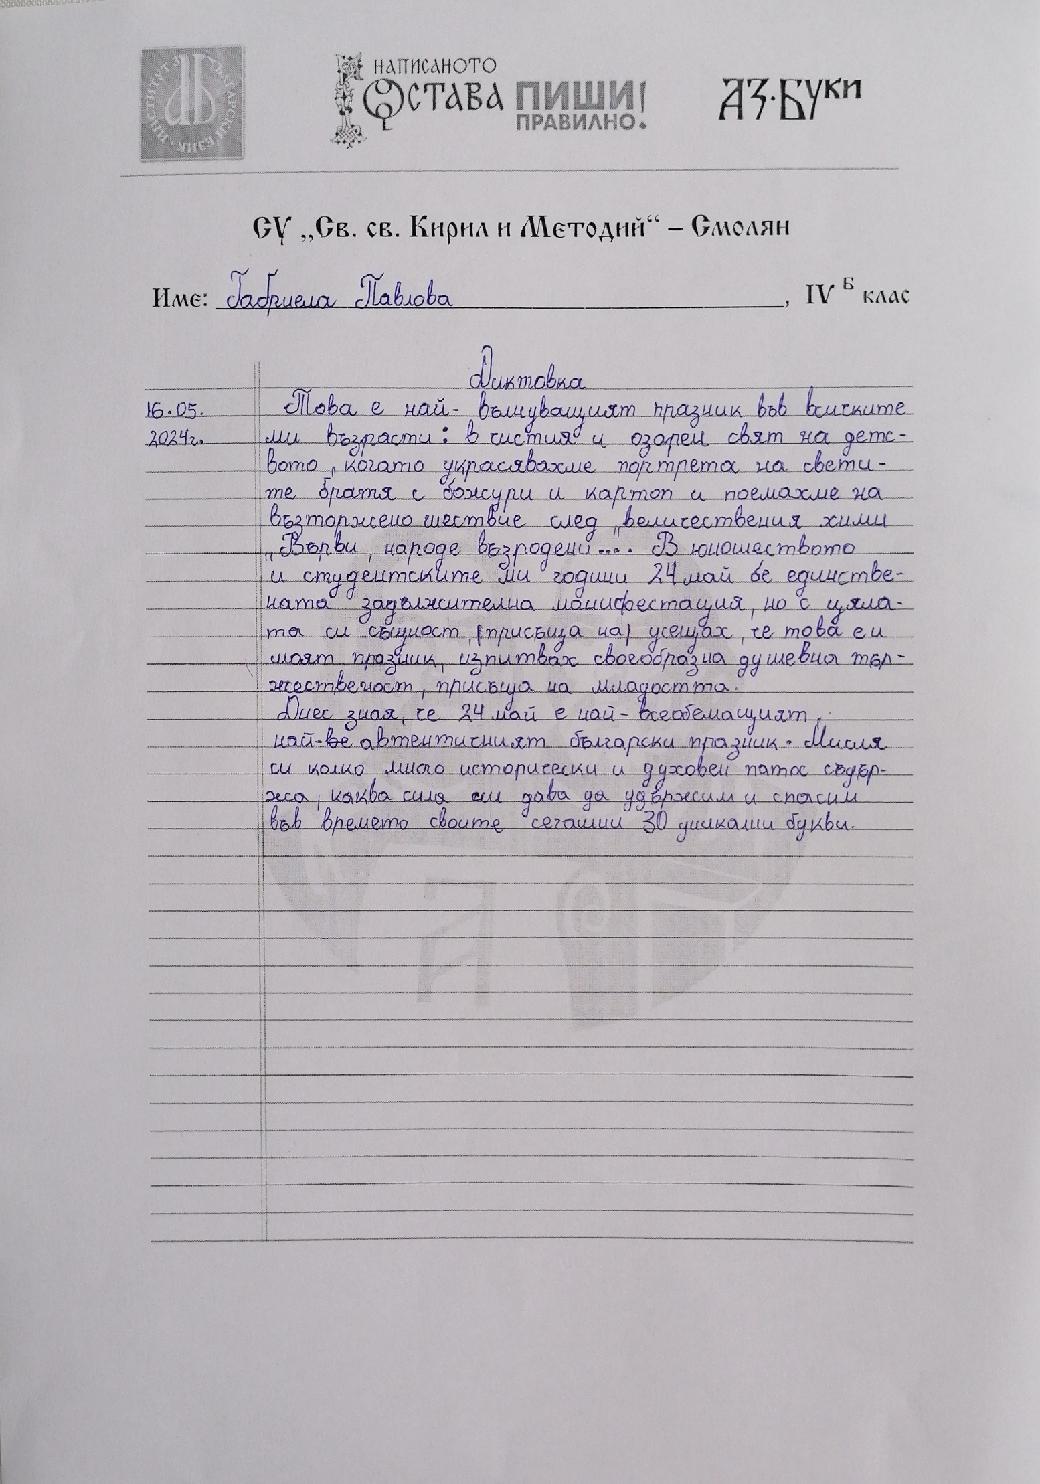 НАПИСАНОТО
ОСТАВА ПИШИ
ПРАВИЛНО!
АЗ·БУКИ
СУ „Св. св. Кирил и Методий“ – Смолян
Име: Габриела Павлова, IV Б клас
Диктовка
16.05. Това е най- вълнуващият празник във всичките
2024г. ми възрасти: в чистия и озарен свят на детс-
вото, когато украсявахме портрета на свети-
те братя с божури и картон и поемахме на
възторжено шествие след „величествения химн
„Върви, народе възродени.... В юношеството
и студентските ми години 24 май бе единстве-
ната задължителна манифестация, но с цяла-
та си същност, (присъща на) усещах, че това е и
моят празник, изпитвах своеобразна душевна тър-
жественост, присъща на младостта.
Днес зная, че 24 май е най-всеобемащият,
най-ве автентичният български празник. Мисля
си колко много исторически и духовен патос съдър-
жа, каква сила ни дава да удържим и спасим
във времето своите сегашни 30 уникални букви.